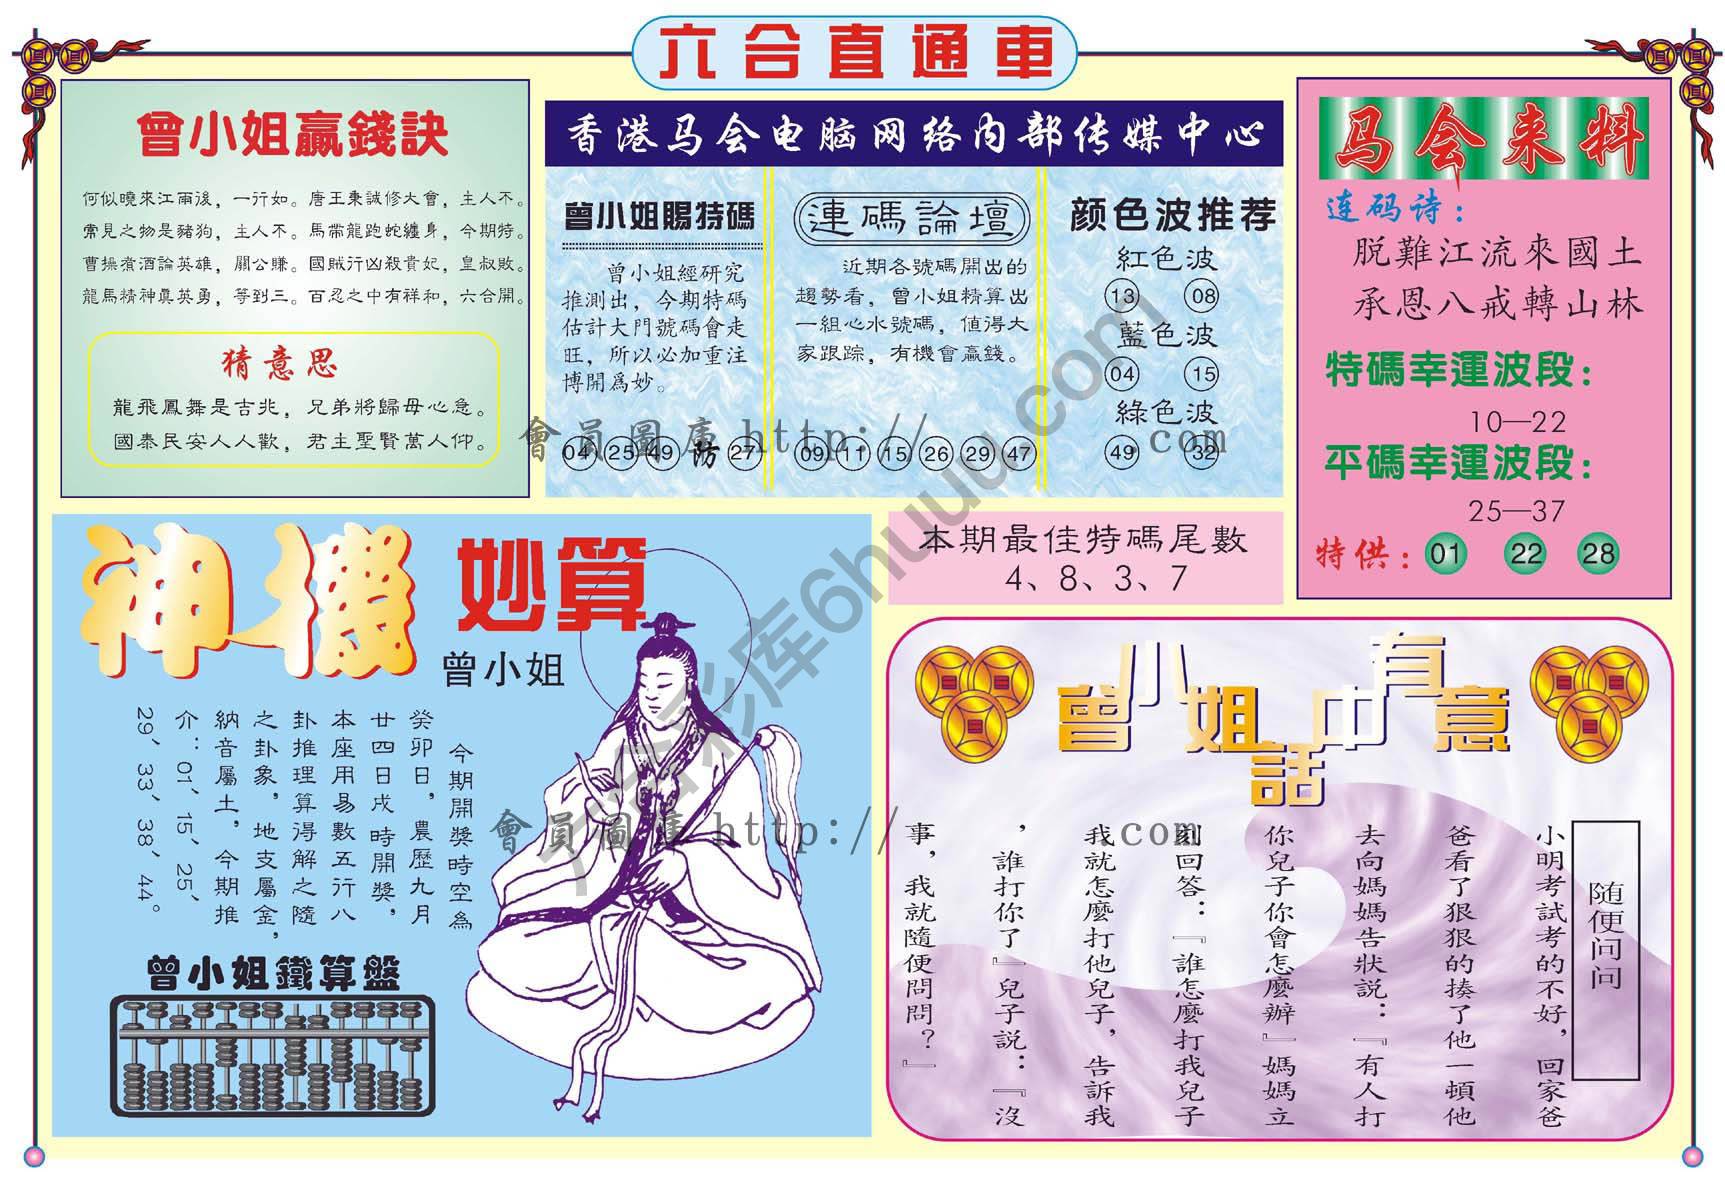 六合直通車
曾小姐贏錢訣
何似曉來江雨後，一行如。唐王秉誠修大會，主人不。
常見之物是豬狗，主人不。馬帶龍跑蛇纏身，今期特。
曹操煮酒論英雄，關公賺。國賊行凶殺貴妃，皇叔敗。
龍馬精神真英勇，等到三。百忍之中有祥和，六合開。
猜意思
龍飛鳳舞是吉兆，兄弟將歸母心急。
國泰民安人人歡，君主聖賢萬人仰。
香港马会电脑网络内部传媒中心
曾小姐賜特碼
曾小姐經研究
推測出，今期特碼
估計大門號碼會走
旺，所以必加重注
博開爲妙。
04 25 49 防 27
連碼論壇
近期各號碼開出的
趨勢看，曾小姐精算出
一組心水號碼，值得大
家跟踪，有機會贏錢。
09 11 15 26 29 47
颜色波推荐
紅色波
13 08
藍色波
04 15
綠色波
49 32
马会来料
连码诗：
脱難江流來國土
承恩八戒轉山林
特碼幸運波段：
10—22
平碼幸運波段：
25—37
特供：01 22 28
會員圖庫 http:// .com
本期最佳特碼尾數
4、8、3、7
神機妙算
曾小姐
今期開獎時空為
癸卯日，農歷九月
廿四日戌時開獎，
本座用易數五行八
卦推理算得解之隨
之卦象，地支屬金，
納音屬土，今期推
介：01、15、25、
29、33、38、44。
曾小姐鐵算盤
曾小姐話中有意
随便问问
小明考試考的不好，回家爸
爸看了狠狠的揍了他一頓他
去向媽媽告狀説：『有人打
你兒子你會怎麼辦』媽媽立
刻回答：『誰怎麼打我兒子
我就怎麼打他兒子，告訴我
，誰打你了』兒子説：『沒
事，我就隨便問問？』
會員圖庫 http:// .com
六合彩库6huuu.com